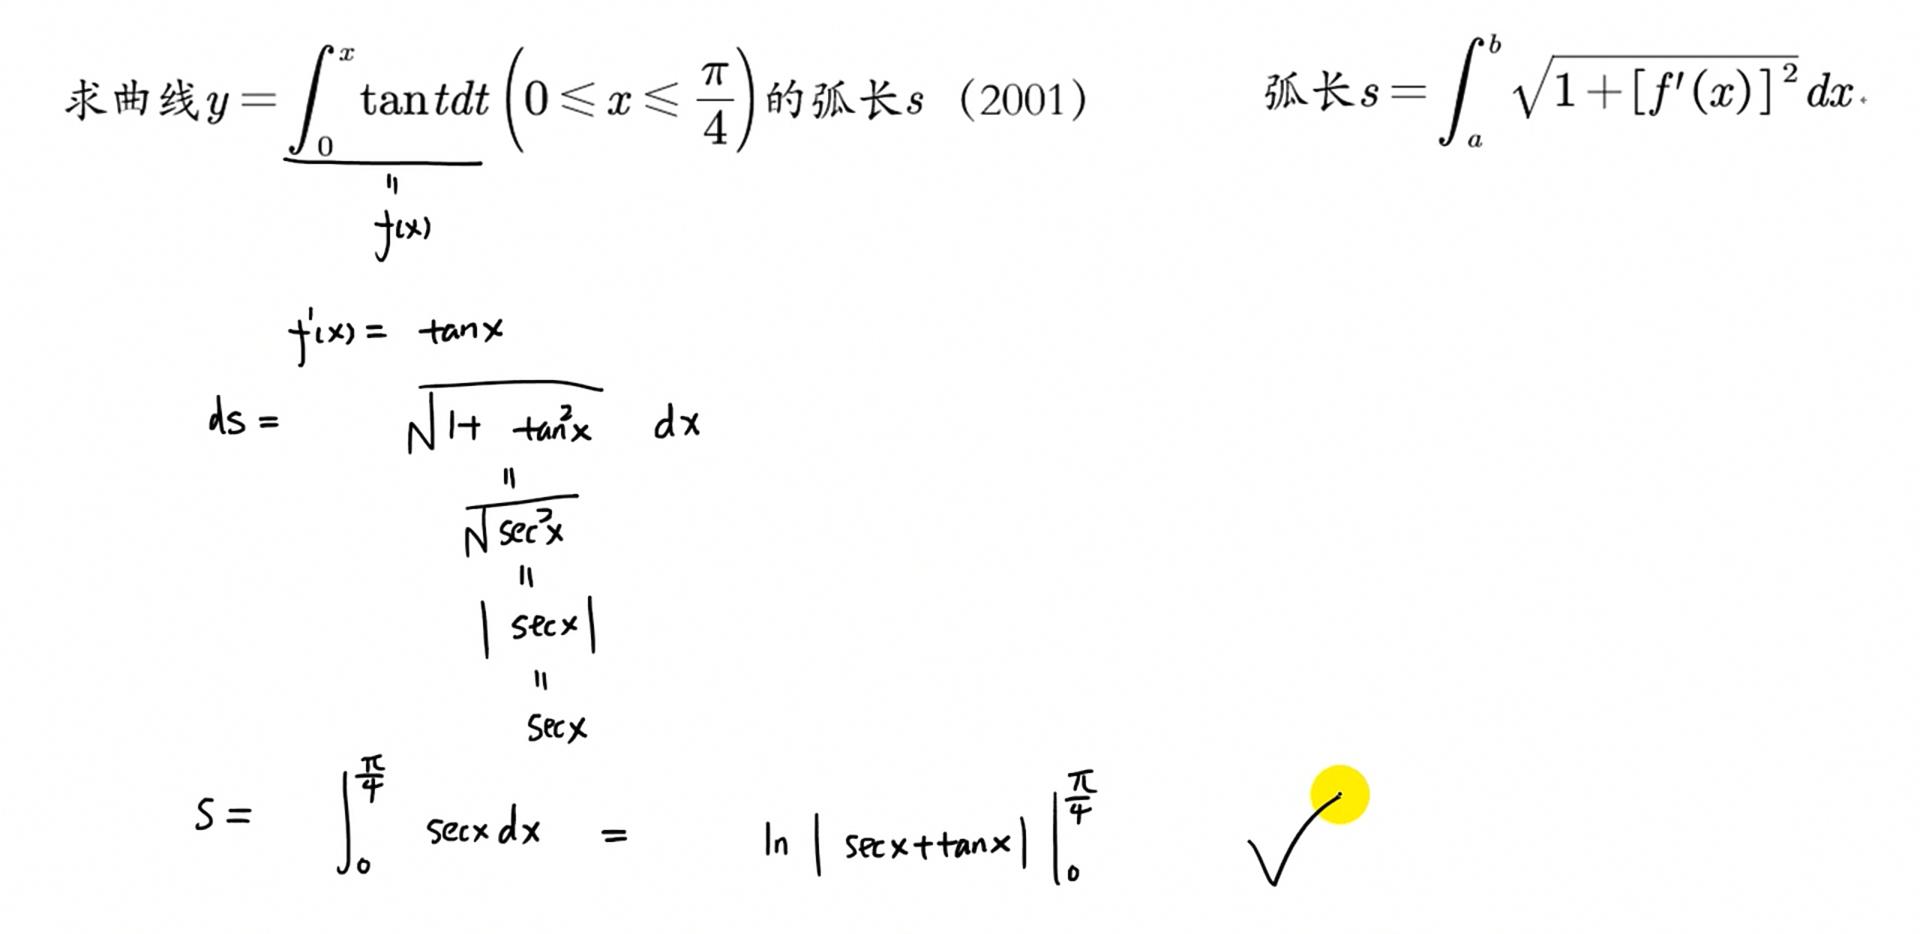 求曲线 y = ∫_0^x tan t dt (0 ⩽ x ⩽ π/4) 的弧长 s （2001）
弧长 s = ∫_a^b √(1+[f′(x)]²) dx.
=
f(x)
f'(x) = tanx
ds = √(1+ tan²x) dx
=
√(sec²x)
=
| secx |
=
secx
S = ∫_0^{π/4} secx dx = ln | secx+tanx | |_0^{π/4} √